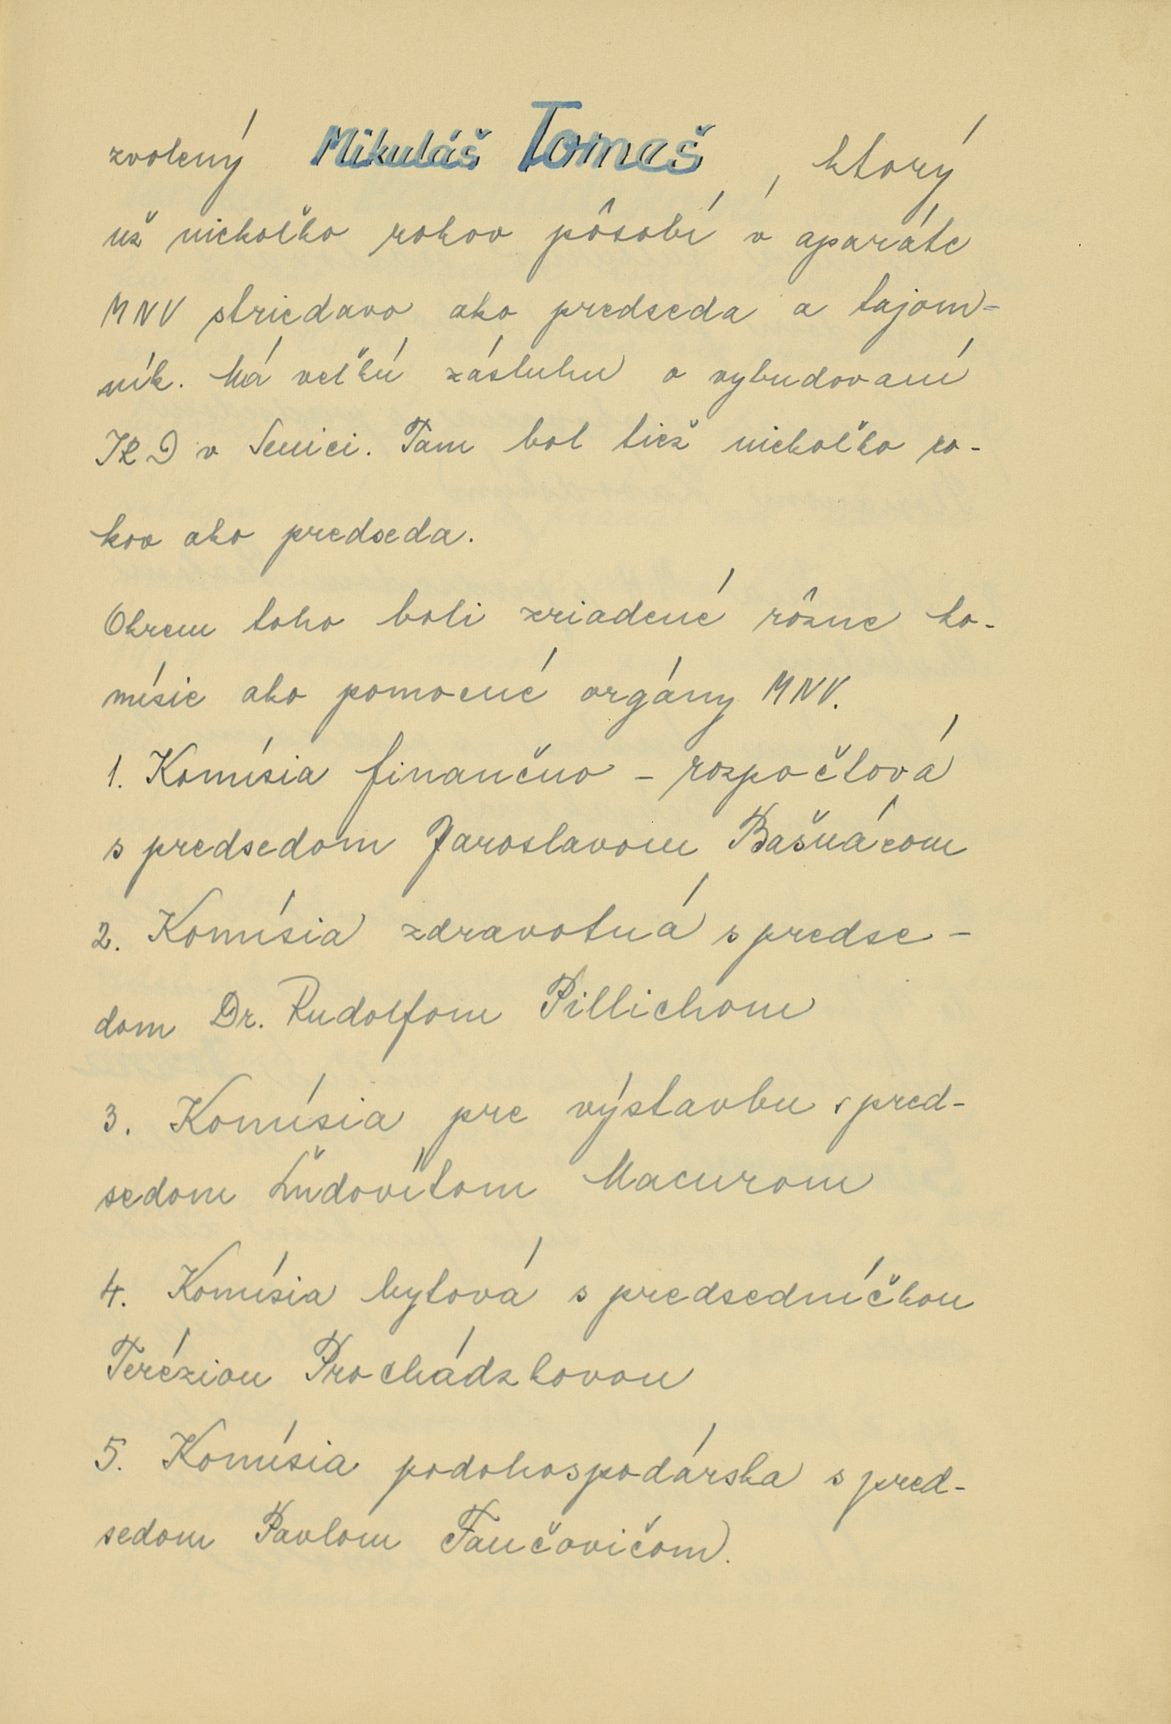 zvolený Mikuláš Tomeš, ktorý
už niekoľko rokov pôsobí v aparáte
MNV striedavo ako predseda a tajom=
ník. Má veľkú zásluhu o vybudovaní
JRD v Senici. Tam bol tiež niekoľko ro-
kov ako predseda.
Okrem toho boli zriadené rôzne ko-
mísie ako pomocné orgány MNV.
1. Komísia finančno - rozpočtová
s predsedom Jaroslavom Bašnácom
2. Komísia zdravotná s predse-
dom Dr. Rudolfom Pillichom
3. Komísia pre výstavbu s pred-
sedom Ľudovítom Macurom
4. Komísia bytová s predsedníčkou
Teréziou Procházkovou
5. Komísia podohospodárska s pred-
sedom Pavlom Fančovičom.